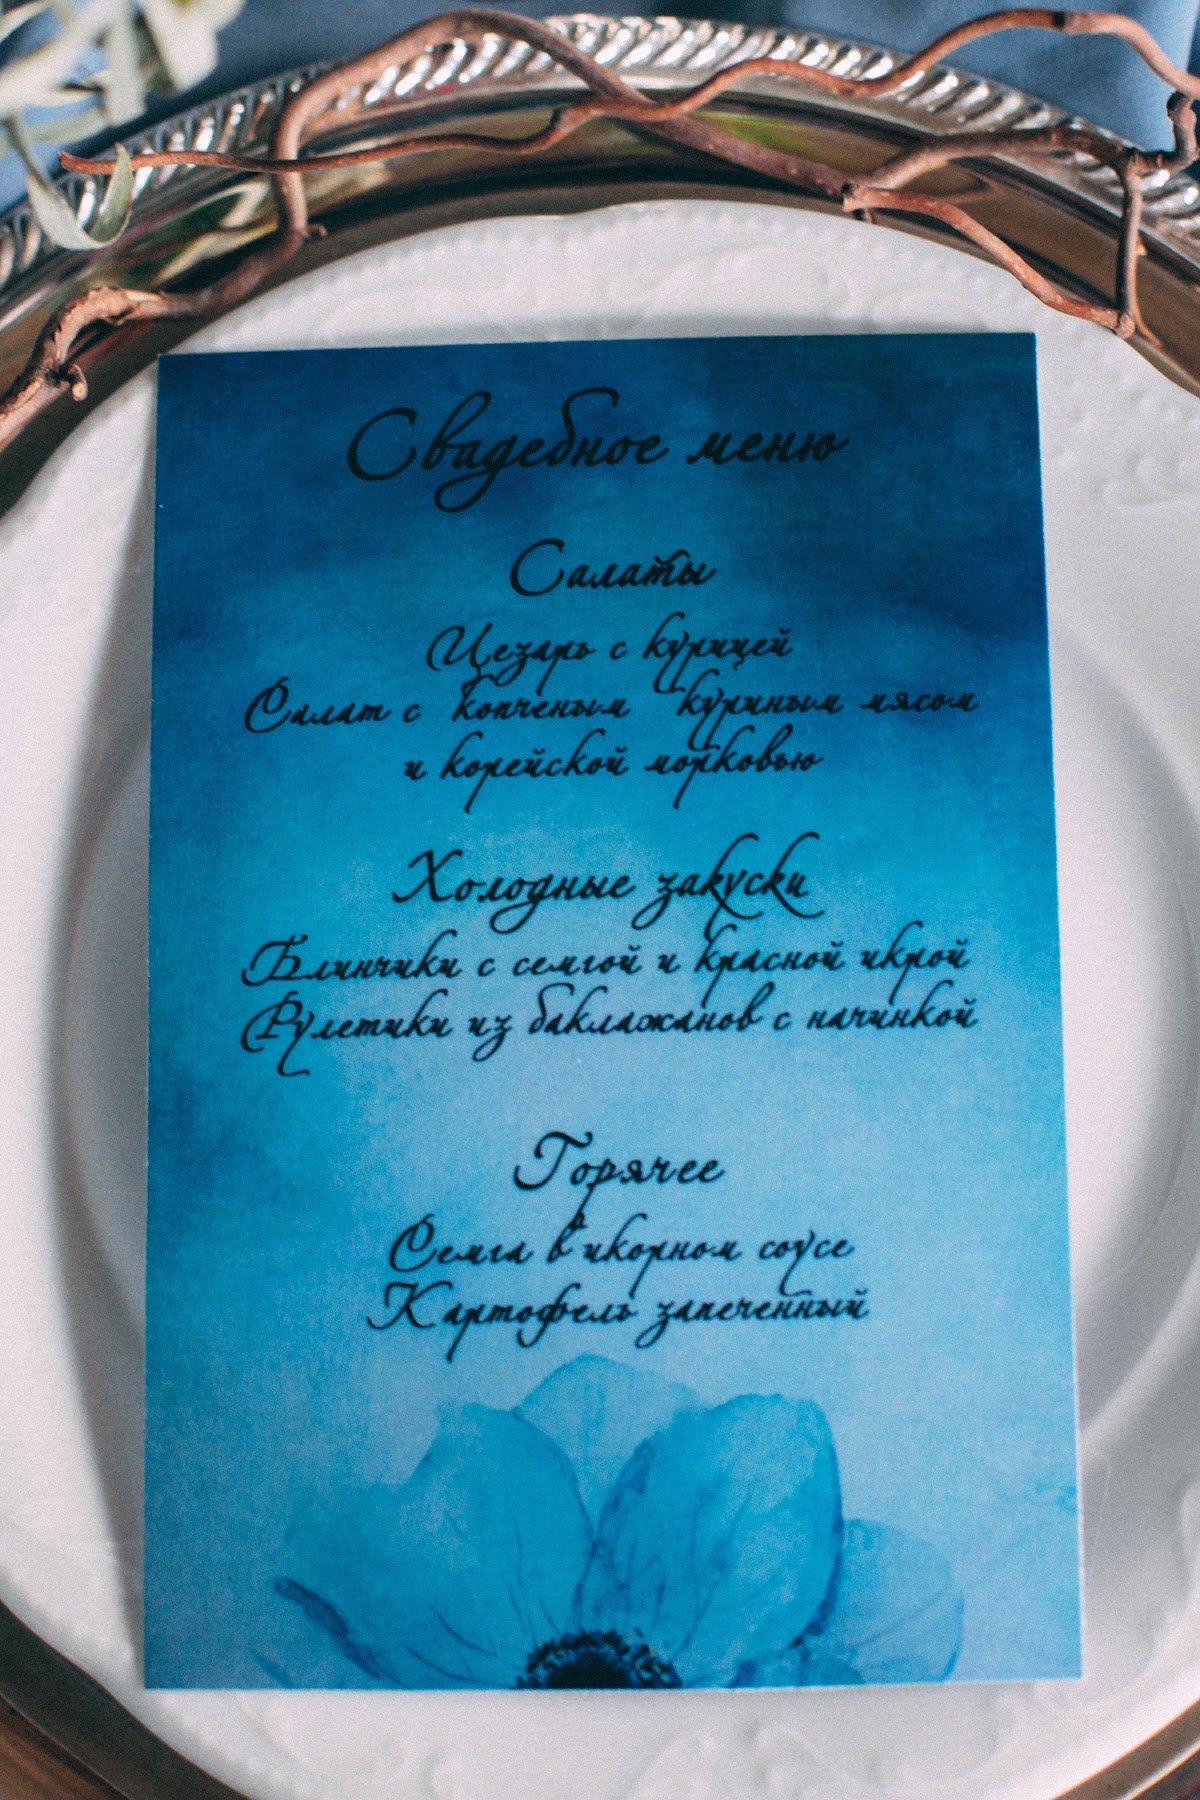 Свадебное меню
Салаты
Цезарь с курицей
Салат с копченым куриным мясом
и корейской морковью
Холодные закуски
Блинчики с семгой и красной икрой
Рулетики из баклажанов с начинкой
Горячее
Семга в икорном соусе
Картофель запеченный